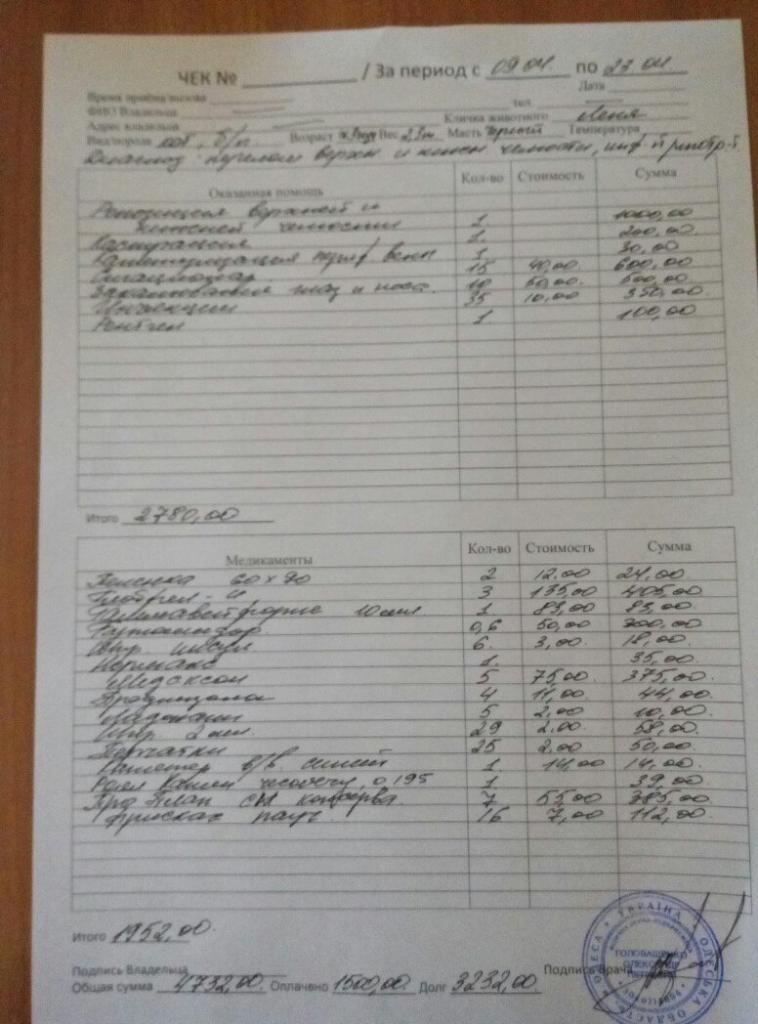 ЧЕК № / За период с 09.04. по 23.04
Дата
Время приёма/вызова
ФИО Владельца тел
Адрес владельца Кличка животного Леня
Вид/порода кот, б/п. Возраст Вес Масть черный Температура
Диагноз перелом верхн и нижн челюсти, инф-й
Оказанная помощь Кол-во Стоимость Сумма
Репозиция верхней и
нижней челюсти 1. 1000,00
Кастрация 1. 200,00
Катетеризация вены 1 30,00
Стационар 15 40,00. 600,00
Закапывание глаз и носа. 10 50,00. 500,00.
Инъекции 35 10,00 350,00
Рентген 1. 100,00
Итого 2780,00
Медикаменты Кол-во Стоимость Сумма
Пеленка 60х90 2 12,00 24,00
3 135,00 405,00
10 мл. 1 83,00 83,00.
0,6 50,00 300,00
Шпр инсул 6. 3,00 18,00
1. 35,00
5 75,00 375,00
4 11,00 44,00
5 2,00 10,00.
Шпр. 2 мл. 29 2,00. 58,00.
Перчатки 25 2,00 50,00.
Катетер в/в. синий 1. 14,00 14,00.
Роял Канин 0,195 1 39,00
Про План консерва 7 55,00 385,00
Фрискас пауч 16 7,00 112,00.
Итого 1952,00.
Подпись Владельца Подпись Врача
Общая сумма 4732,00. Оплачено 1500,00 Долг 3232,00.
УКРАЇНА ОДЕСЬКА ОБЛАСТЬ ОДЕСА